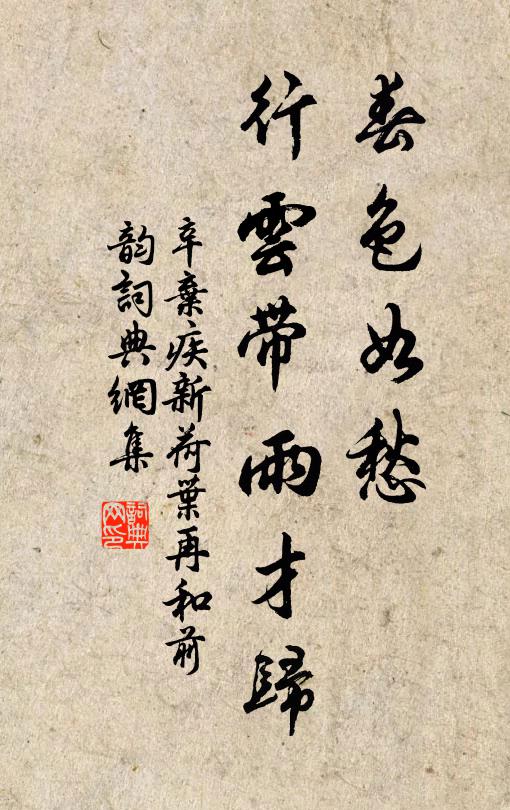 春色如愁
行雲帶雨才歸
辛棄疾新荷葉再和前
韵詞典網集
詞典
网印